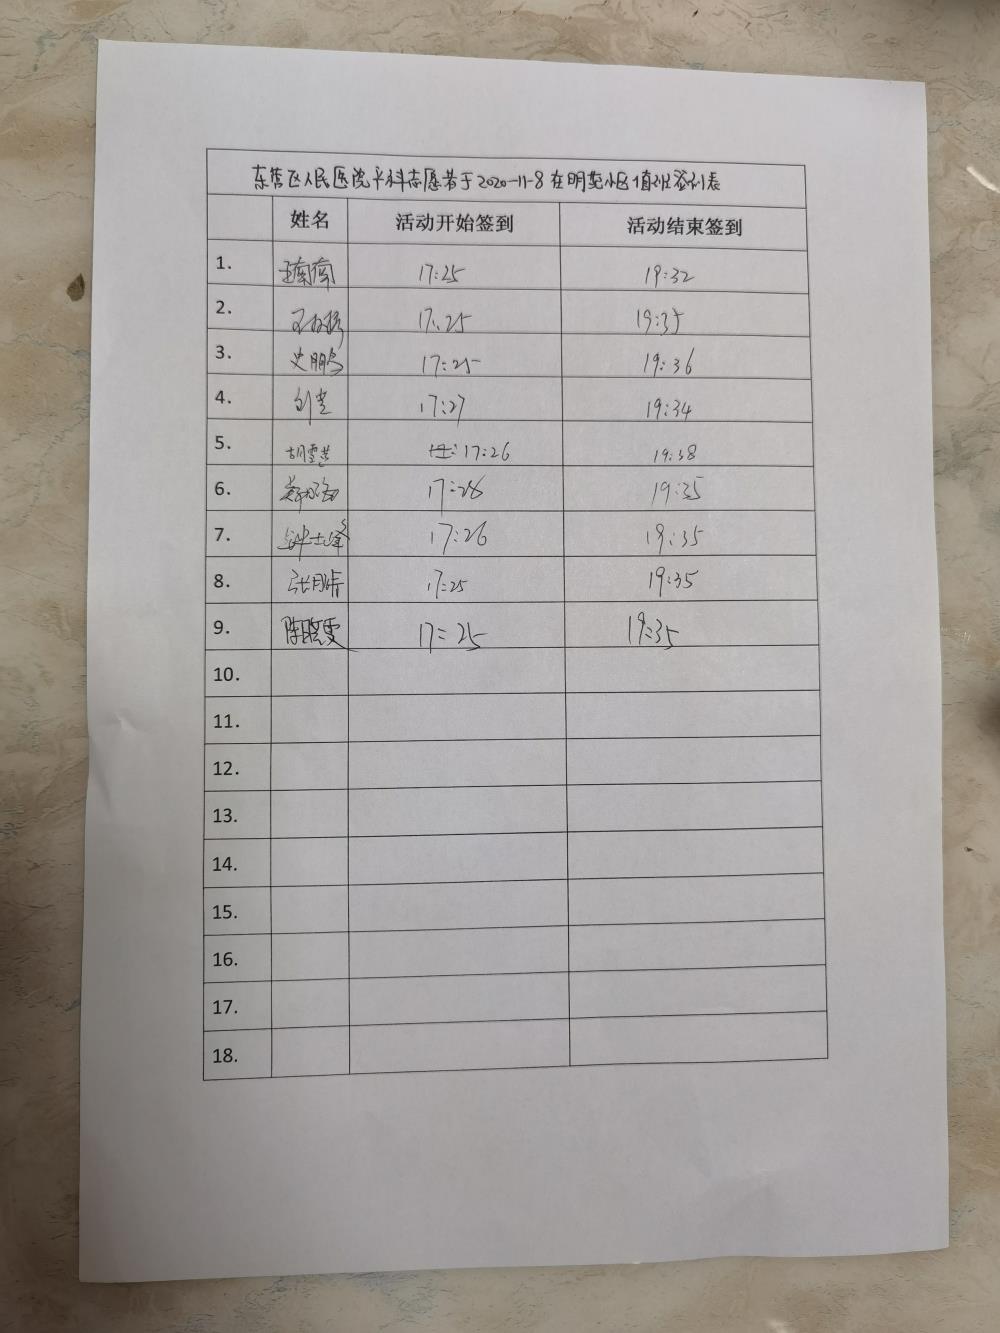 东营区人民医院 科志愿者于2020-11-8在明 小区值班签到表
姓名 活动开始签到 活动结束签到
1. 王南南 17:25 19:32
2. 17:25 19:35
3. 史鹏 17:25 19:36
4. 17:27 19:34
5. 胡雪芸 17:26 19:38
6. 17:28 19:35
7. 钟士峰 17:26 19:35
8. 张月 17:25 19:35
9. 陈晓雯 17:25 19:35
10.
11.
12.
13.
14.
15.
16.
17.
18.